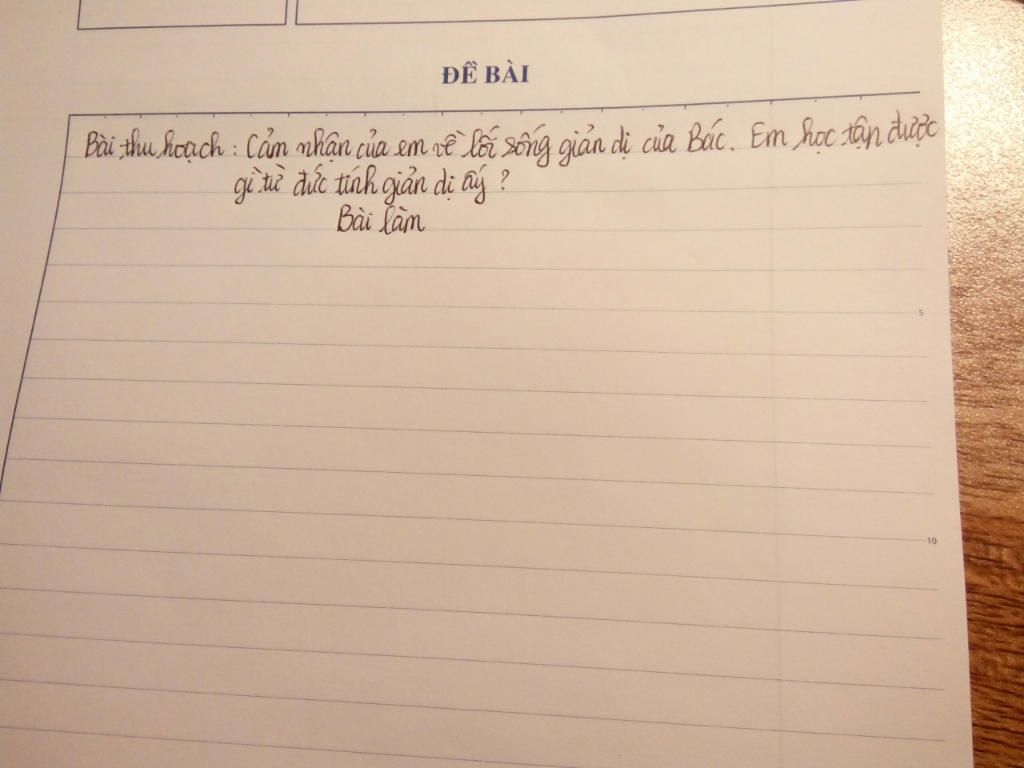 ĐỀ BÀI
Bài thu hoạch : Cảm nhận của em về lối sống giản dị của Bác. Em học tập được
gì từ đức tính giản dị ấy ?
Bài làm
5
10